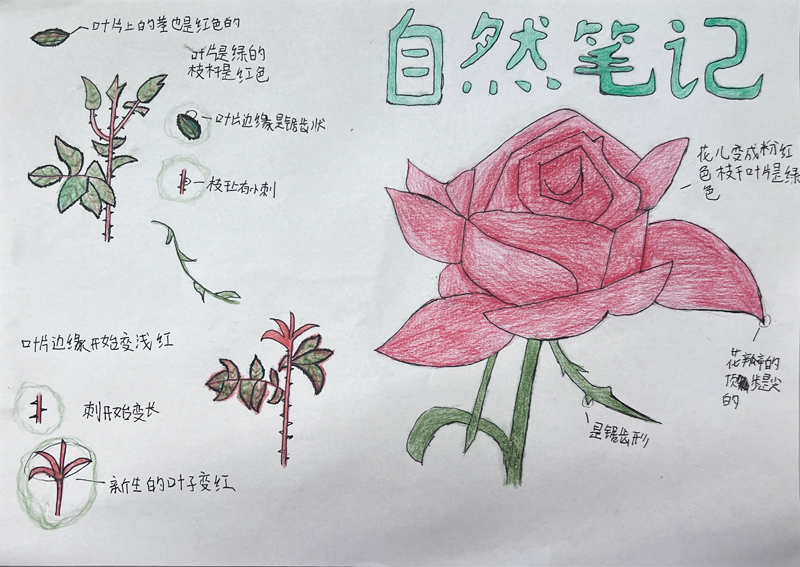 自然笔记
叶片上的茎也是红色的
叶片是绿的
枝杆是红色
叶片边缘是锯齿状
枝上有小刺
叶片边缘开始变浅红
刺开始变长
新生的叶子变红
花儿变成粉红
色枝干叶片是绿
色
花瓣的
顶端是尖
的
是锯齿形